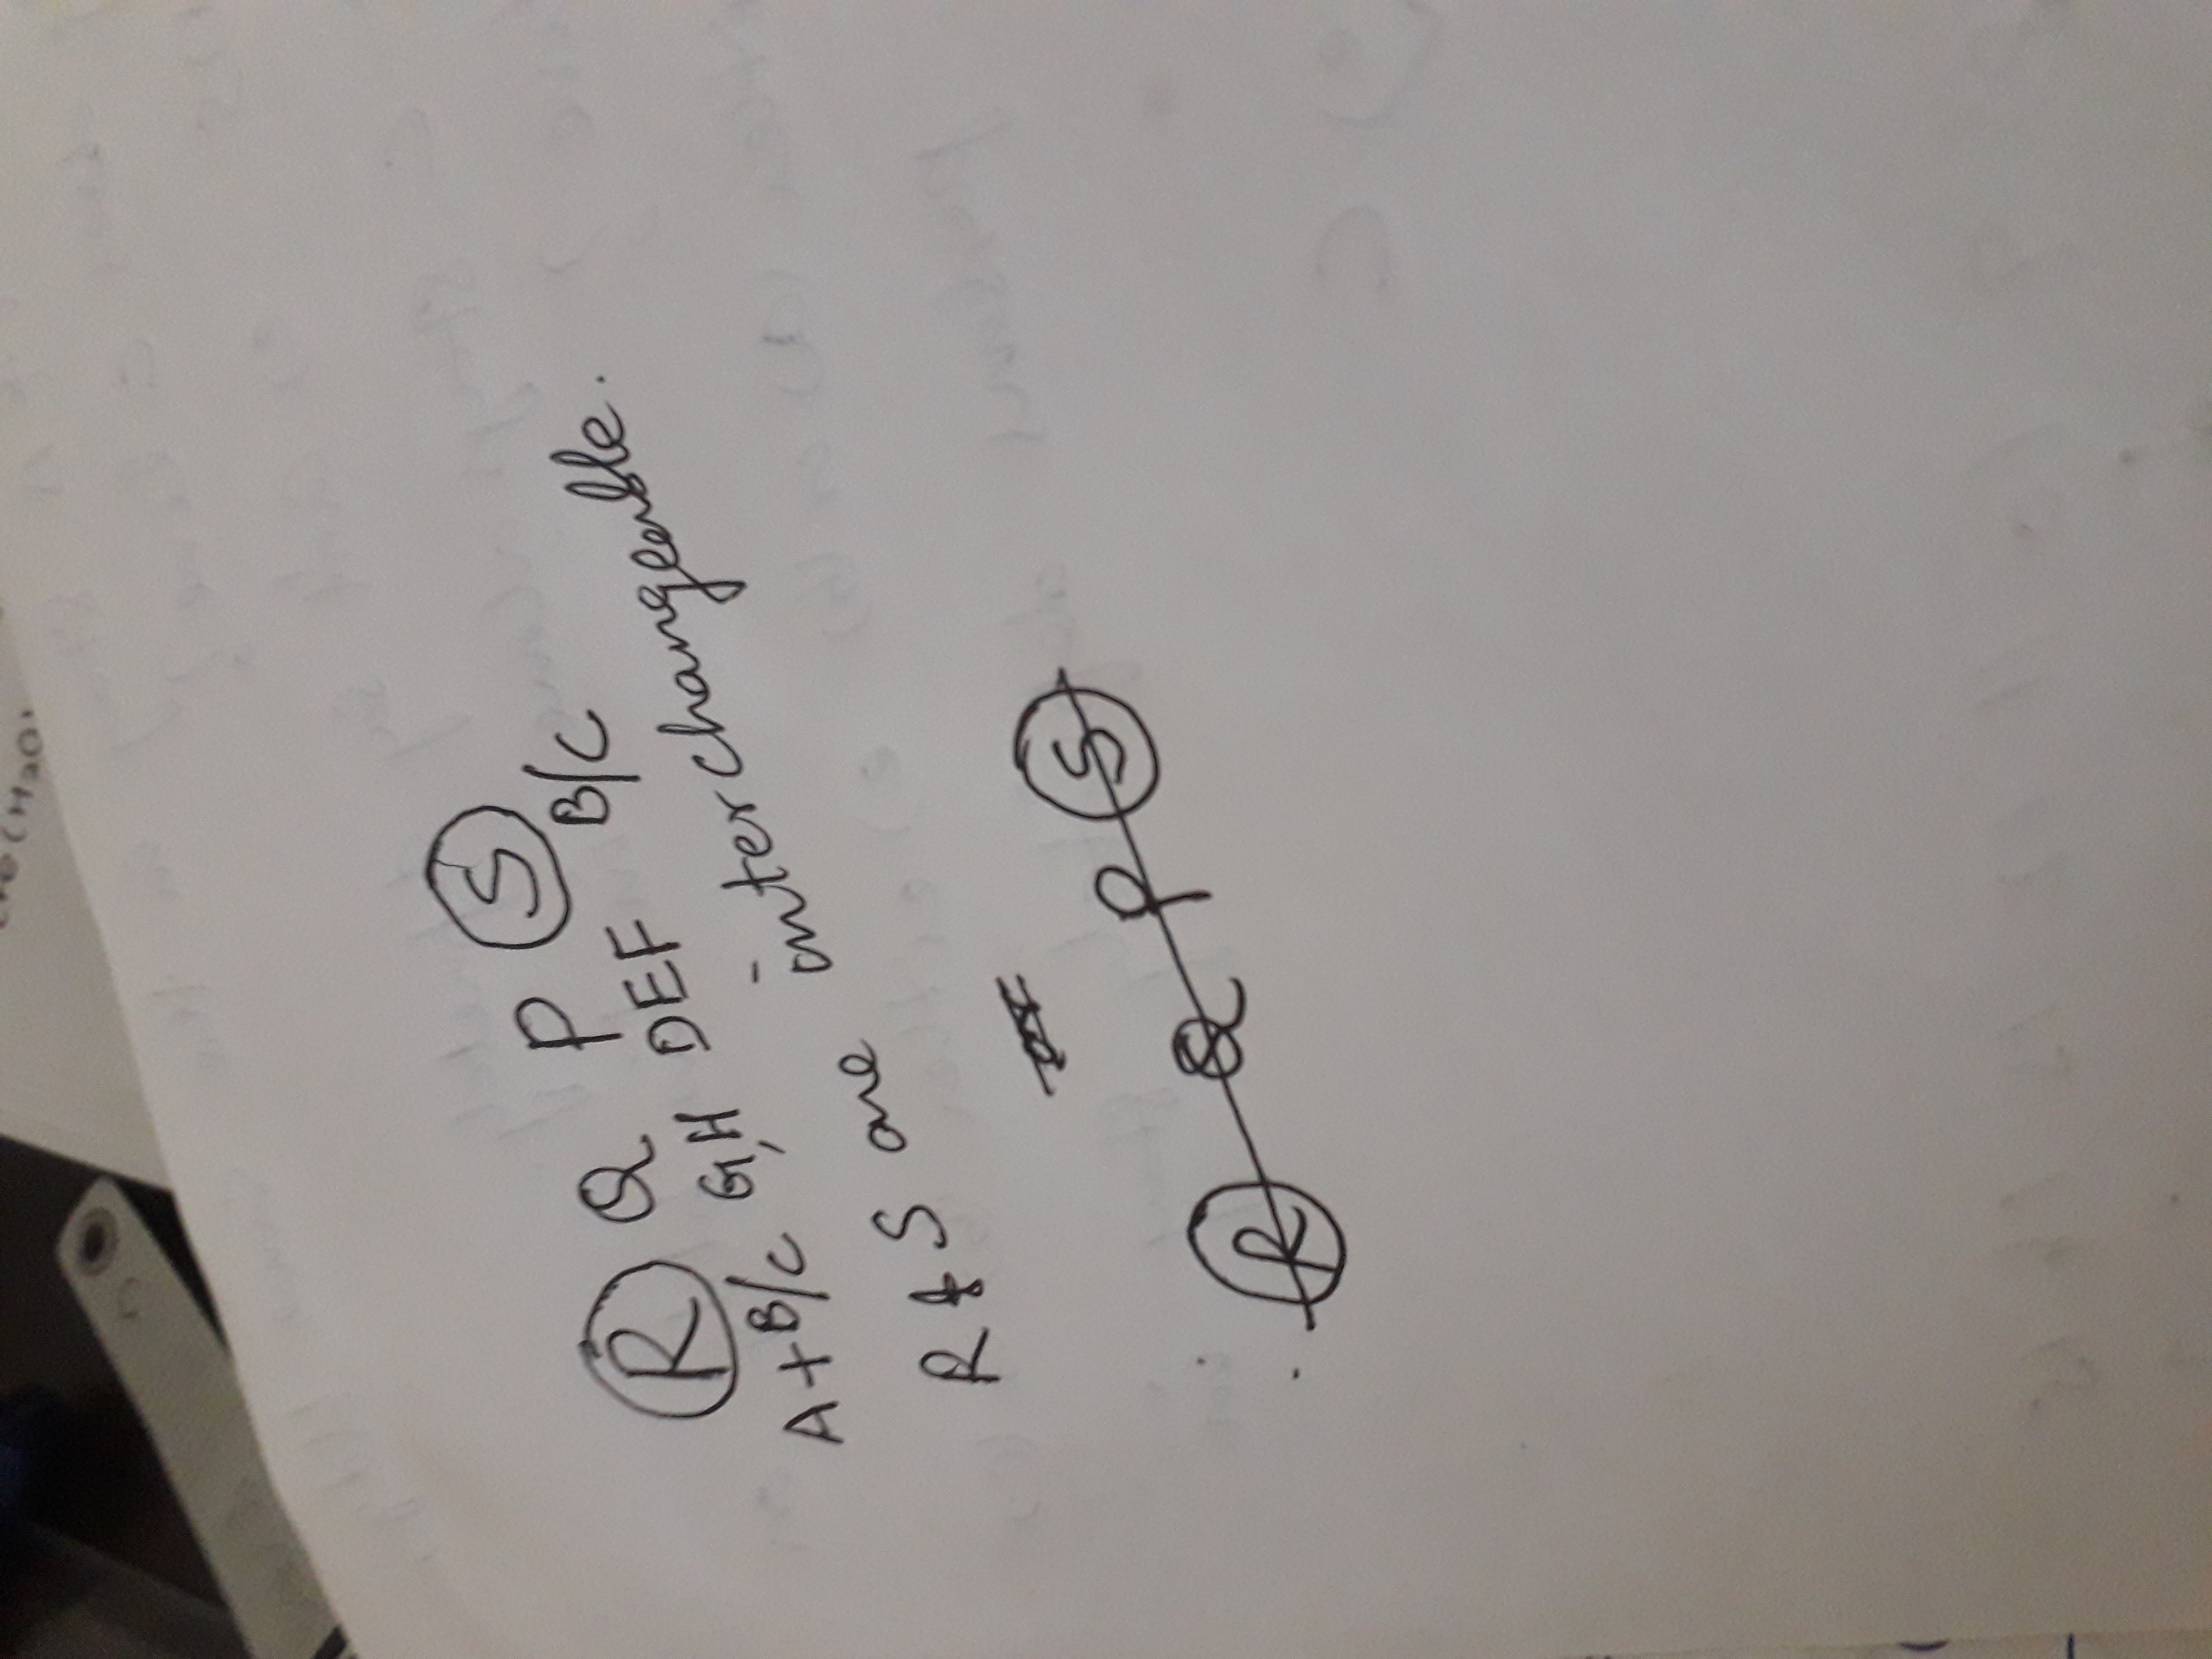 R Q P S
A+B/C G,H DEF B/C
R & S are interchangeable.
R Q P S